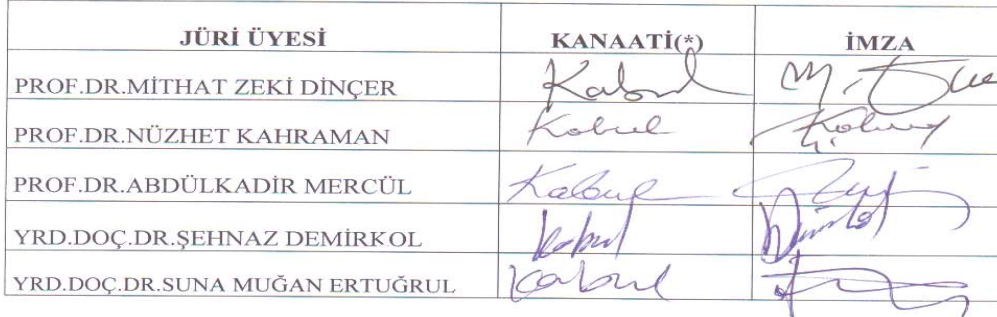 JÜRİ ÜYESİ KANAATİ(*) İMZA
PROF.DR.MİTHAT ZEKİ DİNÇER Kabul
PROF.DR.NÜZHET KAHRAMAN Kabul
PROF.DR.ABDÜLKADİR MERCÜL Kabul
YRD.DOÇ.DR.ŞEHNAZ DEMİRKOL Kabul
YRD.DOÇ.DR.SUNA MUĞAN ERTUĞRUL Kabul